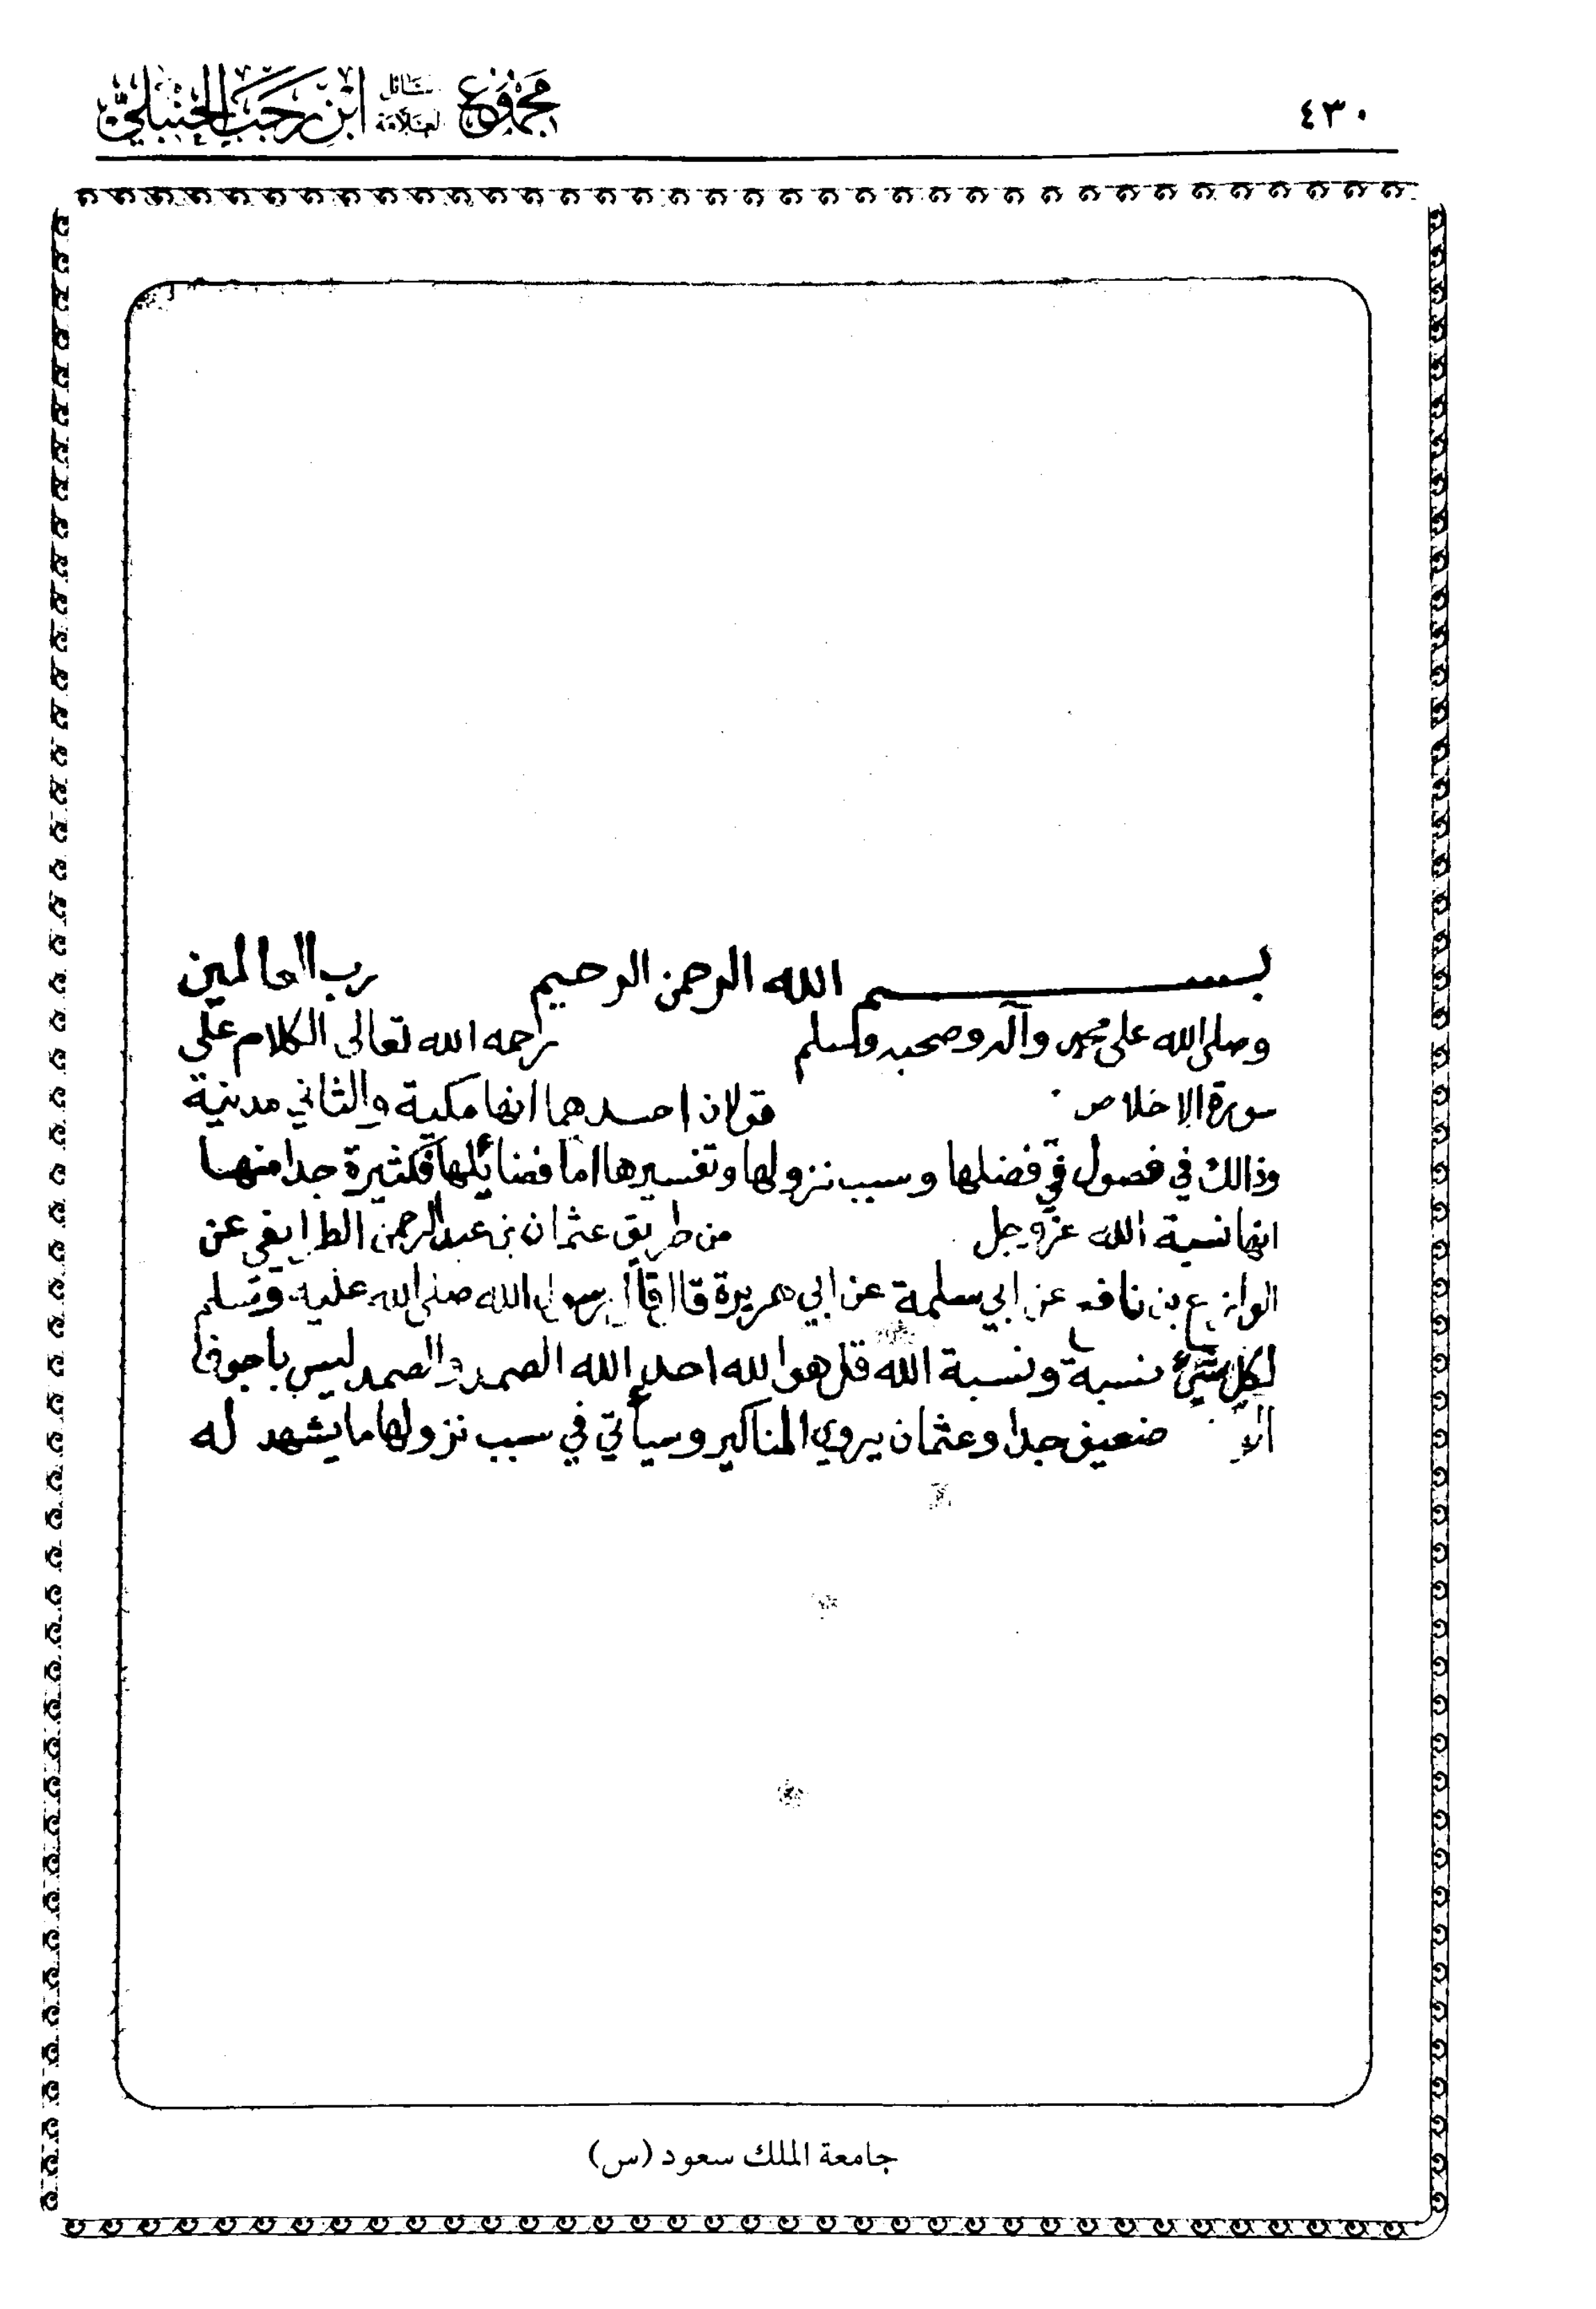 ٤٣٠
مجموع رسائل العلامة ابن رجب الحنبلي
بسم الله الرحمن الرحيم رب العالمين
وصلى الله على محمد وآله وصحبه وسلم رحمه الله تعالى الكلام على
سورة الاخلاص قولان احدهما انها مكية والثاني مدنية
وذالك في فصول في فضلها وسبب نزولها وتفسيرها اما فضائلها فكثيرة جدا منها
انها نسبة الله عز وجل من طريق عثمان بن عبد الرحمن الطرايفي عن
الوازع بن نافع عن ابي سلمة عن ابي هريرة قال قال رسول الله صلى الله عليه وسلم
لكل شيء نسبة ونسبة الله قل هو الله احد الله الصمد والصمد ليس باجوفا
ضعيف جدا وعثمان يروي المناكير وسيأتي في سبب نزولها ما يشهد له
جامعة الملك سعود (س)